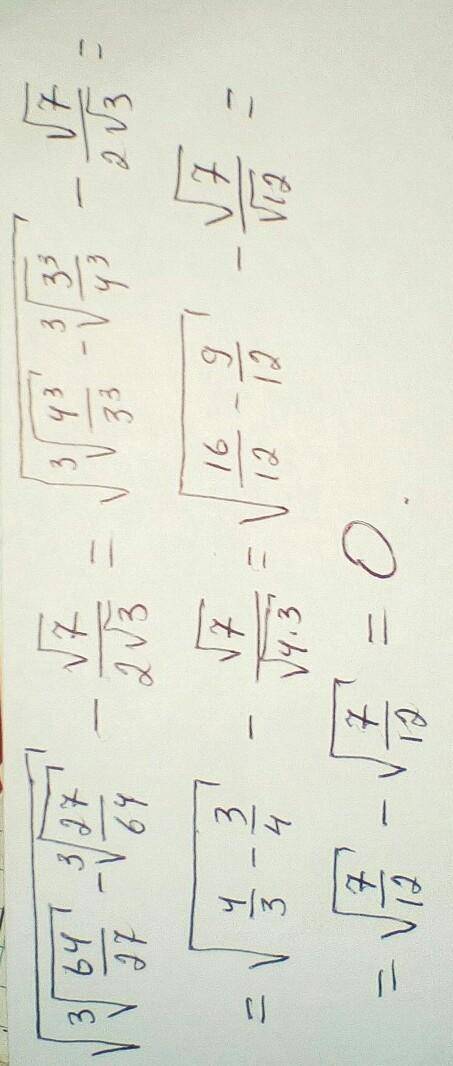 √(∛(64/27) - ∛(27/64)) - √7/(2√3) = √(∛(4³/3³) - ∛(3³/4³)) - √7/(2√3) =
= √(4/3 - 3/4) - √7/√(4·3) = √(16/12 - 9/12) - √7/√12 =
= √(7/12) - √(7/12) = 0.